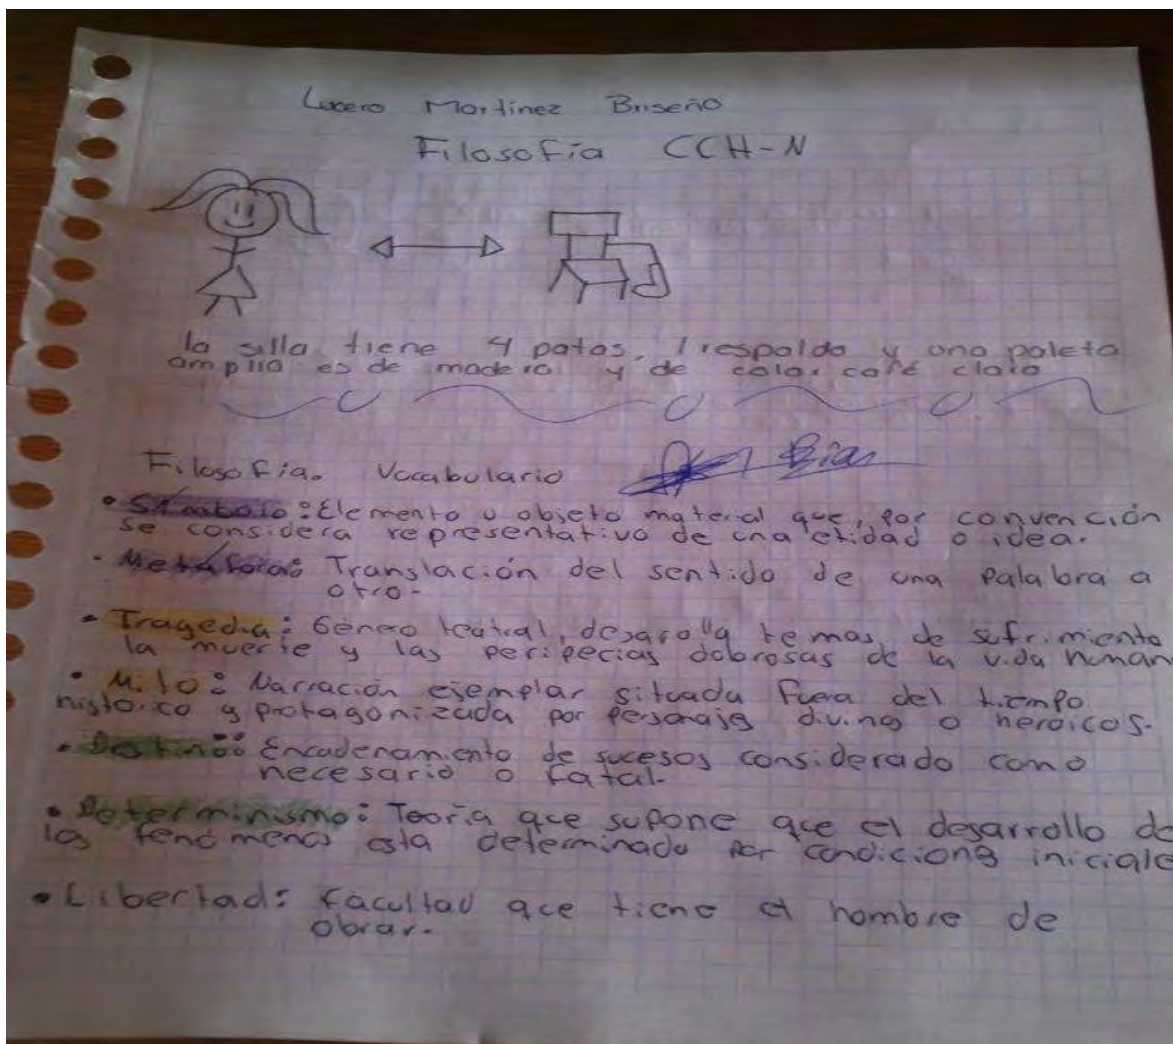 Lucero Martínez Briseño
Filosofía CCH-N
la silla tiene 4 patas, 1 respaldo y una paleta
amplia es de madera y de color café claro
Filosofía. Vocabulario
Bian
• Símbolo: Elemento u objeto material que, por convención
se considera representativo de una etidad o idea.
- Metáfora: Translación del sentido de una palabra a
otro.
• Tragedia: Género teatral, desarolla temas de sufrimiento
la muerte y las peripecias dolorosas de la vida human
• Mito: Narración ejemplar situada fuera del tiempo
histórico y protagonizada por personajes divinos o heroicos.
• Destino: Encadenamiento de sucesos considerado como
necesario o fatal.
• Determinismo: Teoría que supone que el desarrollo de
los fenómenos esta determinado por condiciones iniciale
• Libertad: facultad que tiene el hombre de
obrar.